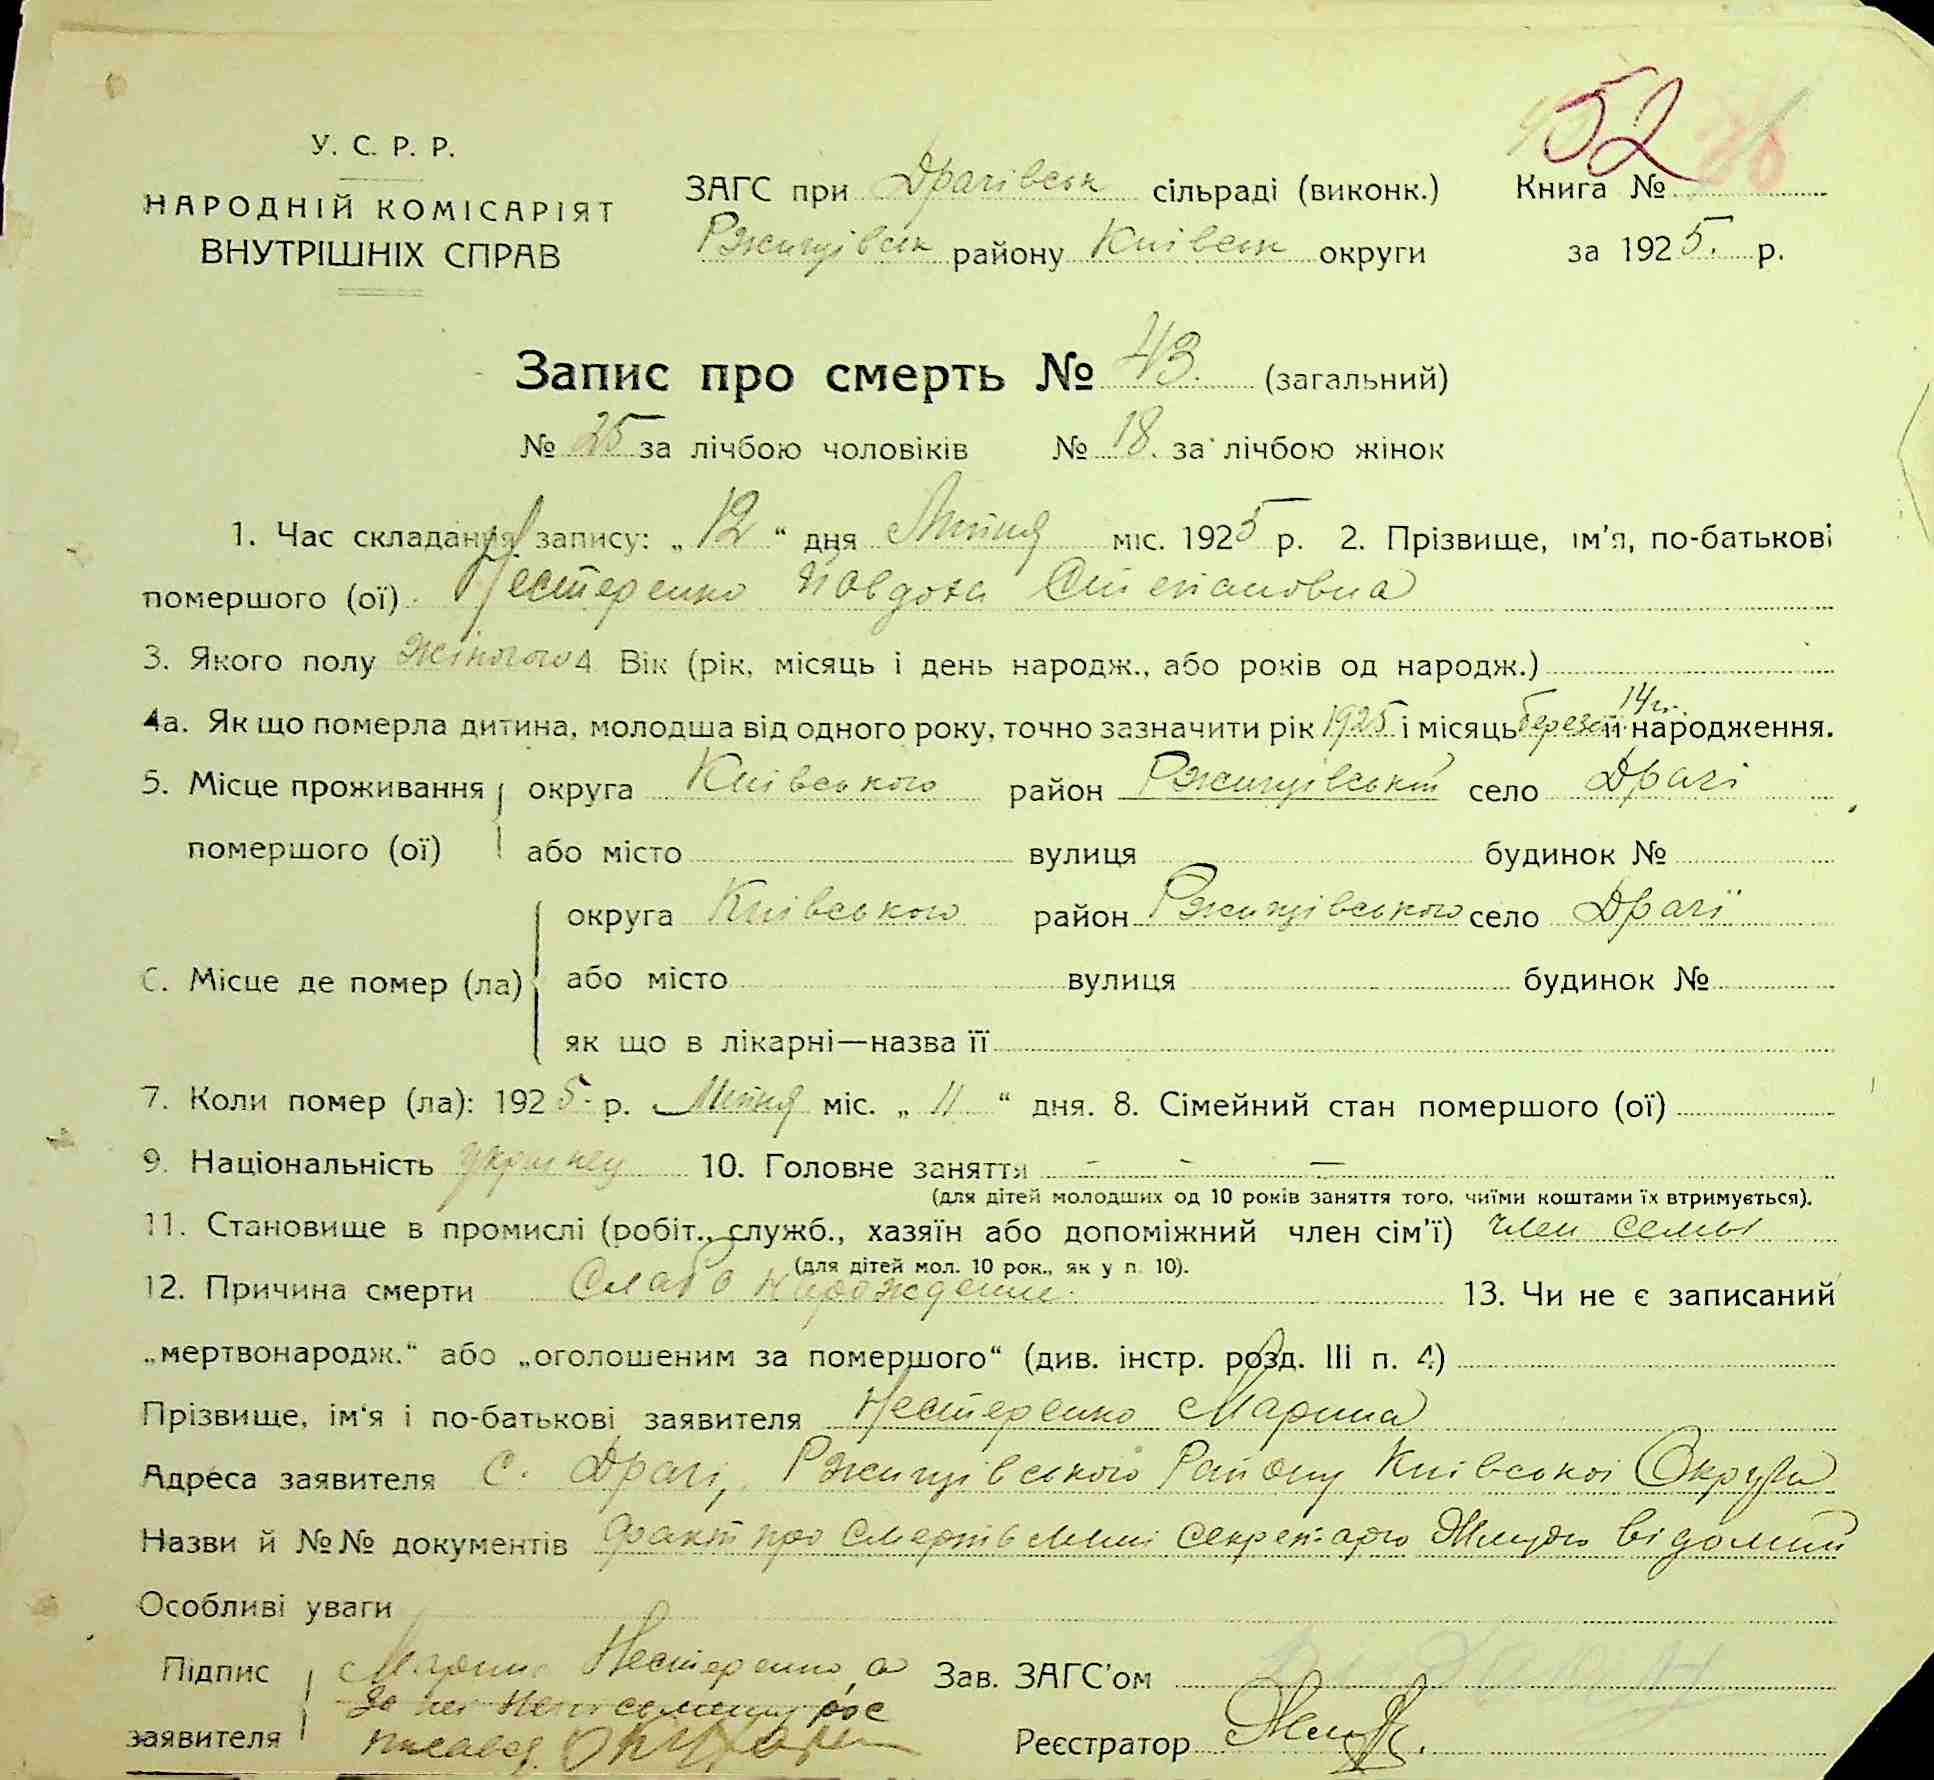 52
У. С. Р. Р.
НАРОДНІЙ КОМІСАРІЯТ
ВНУТРІШНІХ СПРАВ
ЗАГС при Драчівськ сільраді (виконк.) Книга №
Ржищівськ району Київськ округи за 1925. р.
Запис про смерть № 43. (загальний)
№ 25 за лічбою чоловіків № 18. за лічбою жінок
1. Час складання запису: „12“ дня Липня міс. 1925 р. 2. Прізвище, ім'я, по-батькові
помершого (ої) Нестеренко Явдоха Степановна
3. Якого полу жіночого 4 Вік (рік, місяць і день народж., або років од народж.)
4а. Як що померла дитина, молодша від одного року, точно зазначити рік 1925 і місяць березня 14 народження.
5. Місце проживання округа Київського район Ржищівський село Драчі
помершого (ої) або місто вулиця будинок №
округа Київського район Ржищівського село Драчі
6. Місце де помер (ла) або місто вулиця будинок №
як що в лікарні—назва її
7. Коли помер (ла): 1925. р. Липня міс. „11“ дня. 8. Сімейний стан помершого (ої)
9. Національність українец 10. Головне заняття - - —
(для дітей молодших од 10 років заняття того, чиїми коштами їх втримується).
11. Становище в промислі (робіт., служб., хазяїн або допоміжний член сім'ї) член семьи
(для дітей мол. 10 рок., як у п. 10).
12. Причина смерти Слабо 13. Чи не є записаний
„мертвонародж.“ або „оголошеним за помершого“ (див. інстр. розд. III п. 4)
Прізвище, ім'я і по-батькові заявителя Нестеренко Марина
Адреса заявителя С. Драчі, Ржищівського Району Київської Округи
Назви й №№ документів факт про смерть мені секретарю відомий
Особливі уваги
Підпис Марина Нестеренко, а Зав. ЗАГС'ом
за неї неписьменну рос
заявителя писався Реєстратор